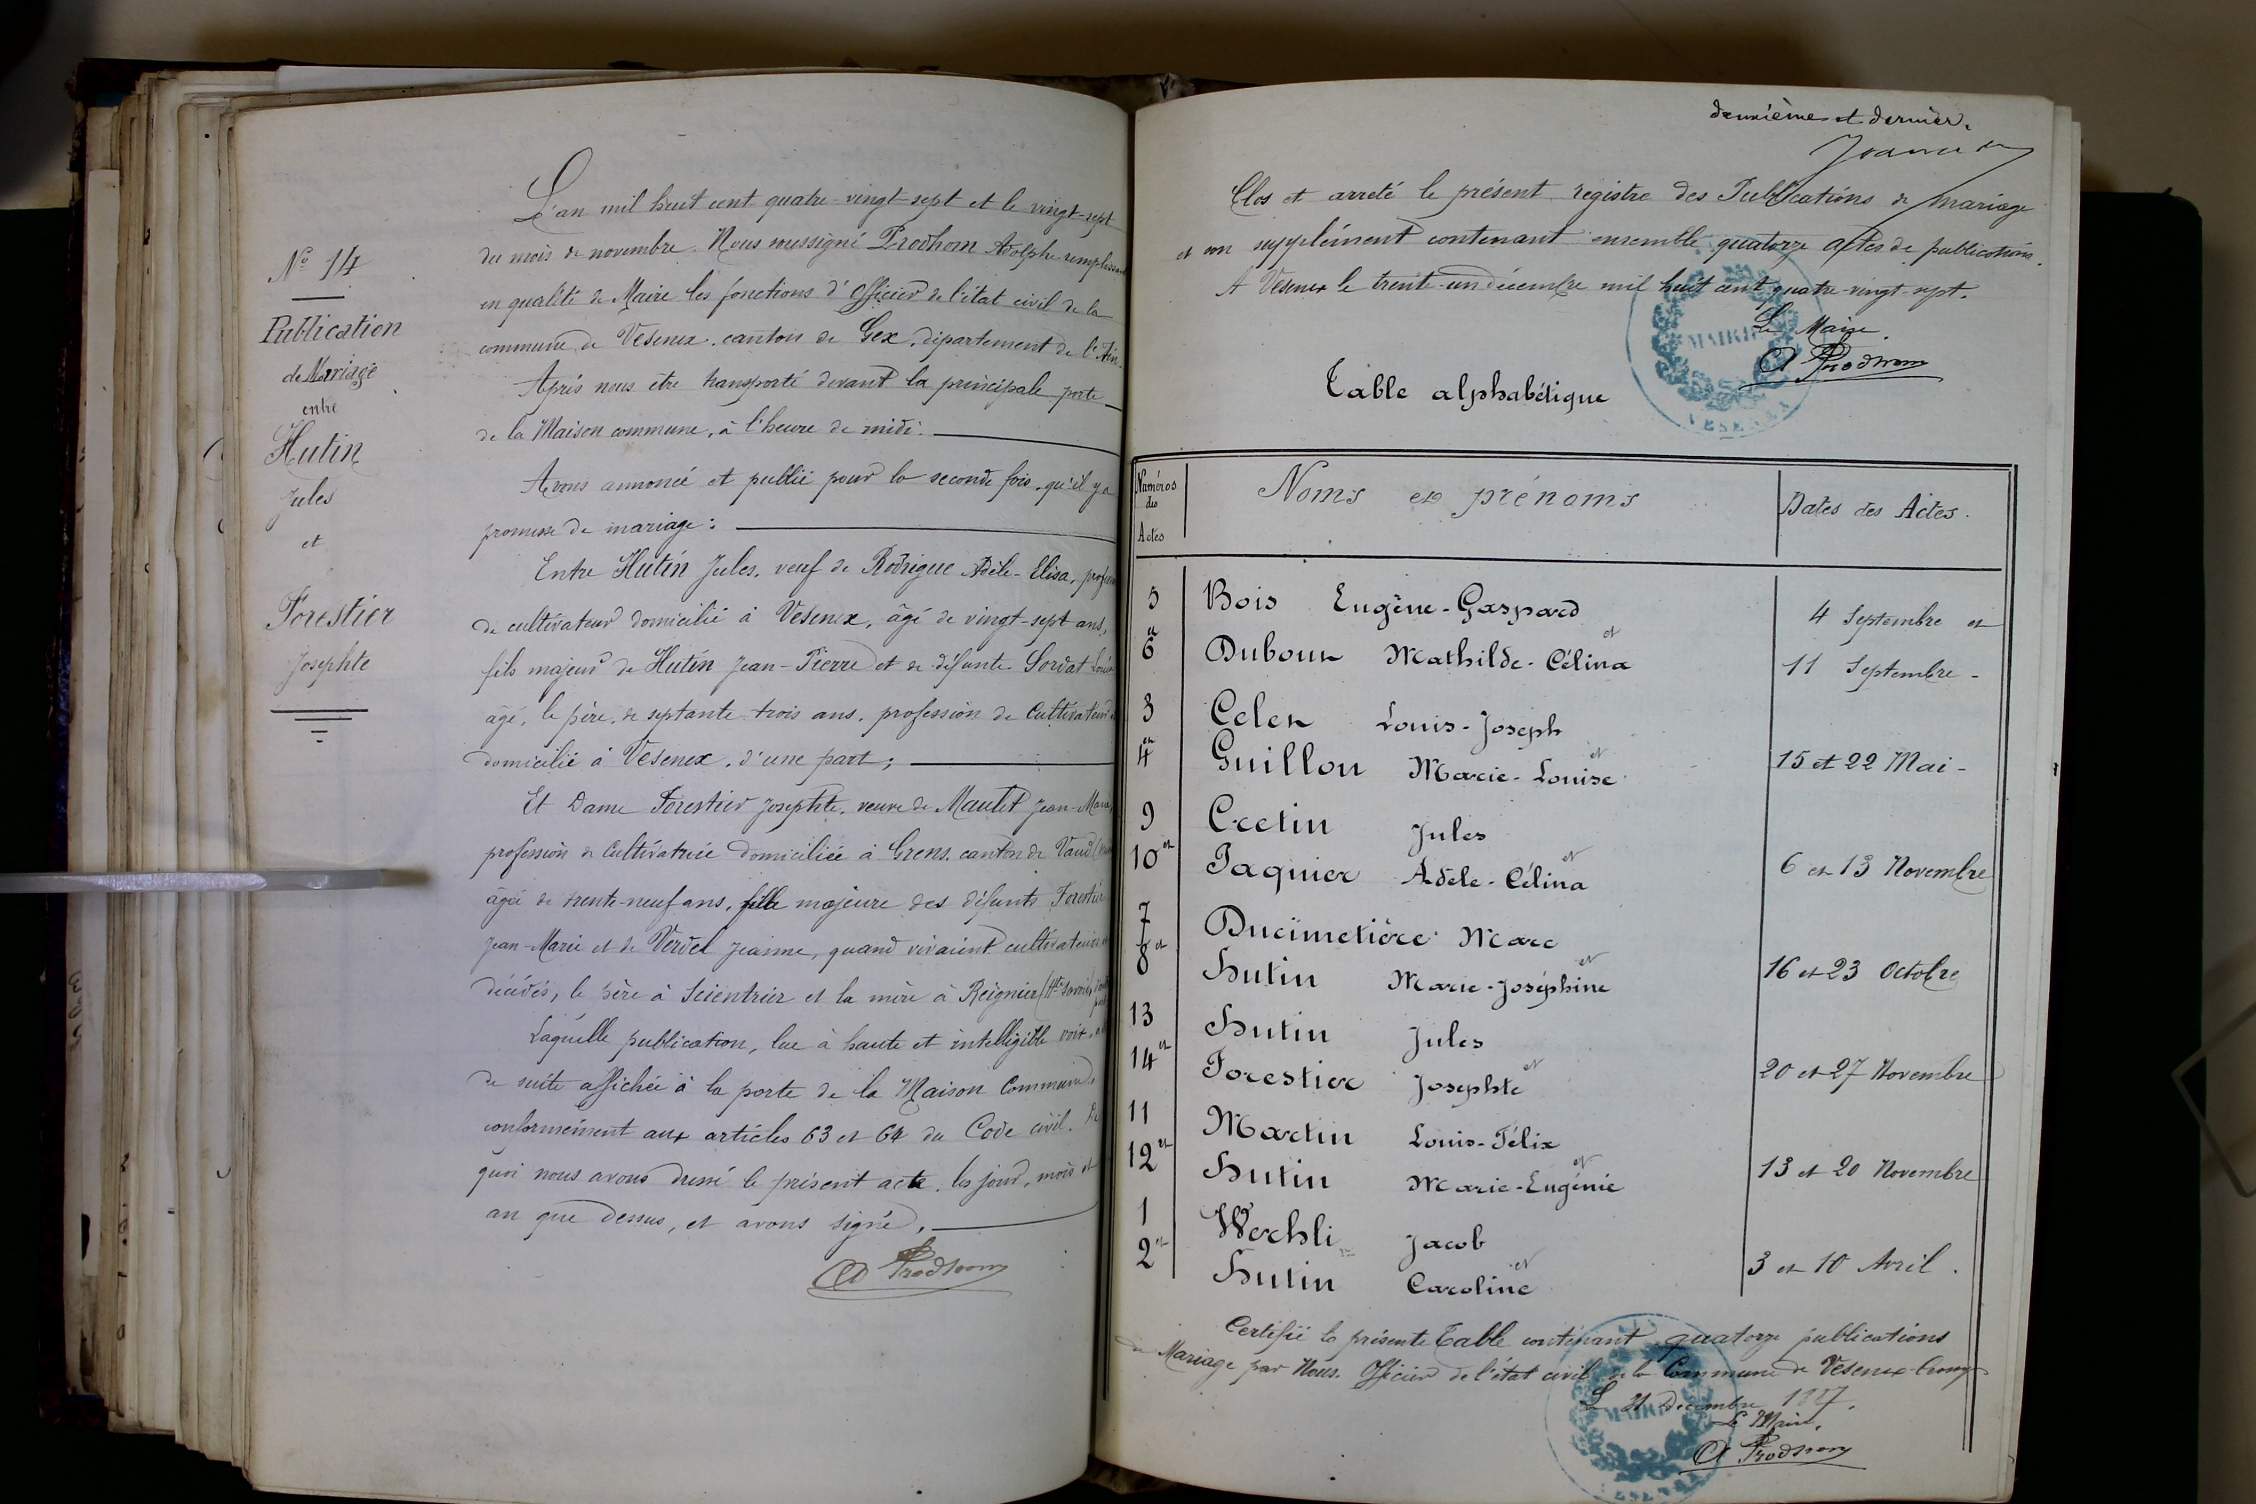 L'an mil huit cent quatre-vingt-sept et le vingt-sept
du mois de novembre. Nous soussigné Prodhom Adolphe remplissant
en qualité de Maire les fonctions d'Officier de l'état civil de la
commune de Vesenex, canton de Gex, département de l'Ain.
Après nous être transporté devant la principale porte
de la Maison commune, à l'heure de midi.
Avons annoncé et publié pour la seconde fois, qu'il y a
promesse de mariage :
Entre Hutin Jules, veuf de Rodrigue Adèle-Elisa,
de cultivateur domicilié à Vesenex, âgé de vingt-sept ans,
fils majeur de Hutin Jean-Pierre et de défunte Sordat
âgé, le père, de septante-trois ans, profession de Cultivateur
domicilié à Vesenex, d'une part ;
Et Dame Forestier Josephte, veuve de Maulet Jean-Marie
profession de Cultivatrice domiciliée à Grens canton de Vaud
âgée de trente-neuf ans, fille majeure des défunts Forestier
Jean-Marie et de Verdel Jeanne, quand vivaient cultivateurs
décédés, le père à Scientrier et la mère à Reignier (Hte Savoie)
Laquelle publication, lue à haute et intelligible voix,
de suite affichée à la porte de la Maison Commune,
conformément aux articles 63 et 64 du Code civil. De
quoi nous avons dressé le présent acte, les jour, mois et
an que dessus, et avons signé.
A Prodhom
No 14
Publication
de Mariage
entre
Hutin
Jules
et
Forestier
Josephte
deuxième et dernier.
Clos et arreté le présent registre des Publications de mariage
et son supplément contenant ensemble quatorze actes de publications.
A Vesenex le trente-un décembre mil huit cent quatre-vingt-sept.
Le Maire
A Prodhom
MAIRIE
VESENEX
Table alphabétique
Numéros des Actes
Noms et prénoms
Dates des Actes.
5 Bois Eugène-Gaspard et 4 Septembre et
et 6 Duboux Mathilde-Célina 11 Septembre -
3 Celex Louis-Joseph et
et 4 Guillon Marie-Louise 15 et 22 Mai -
9 Cretin Jules et
10 et Jaquier Adèle-Célina 6 et 13 Novembre
7 Ducimetière Marc et
8 et Hutin Marie-Joséphine 16 et 23 Octobre
13 Hutin Jules et
14 et Forestier Josephte 20 et 27 Novembre
11 Martin Louis-Félix et
12 et Hutin Marie-Eugénie 13 et 20 Novembre
1 Werhli Jacob et
2 et Hutin Caroline 3 et 10 Avril.
Certifié la présente Table contenant quatorze publications
de Mariage par Nous, Officier de l'état civil de la Commune de Vesenex-Crassy
Le 31 Décembre 1887.
Le Maire,
A Prodhom
MAIRIE
VESENEX